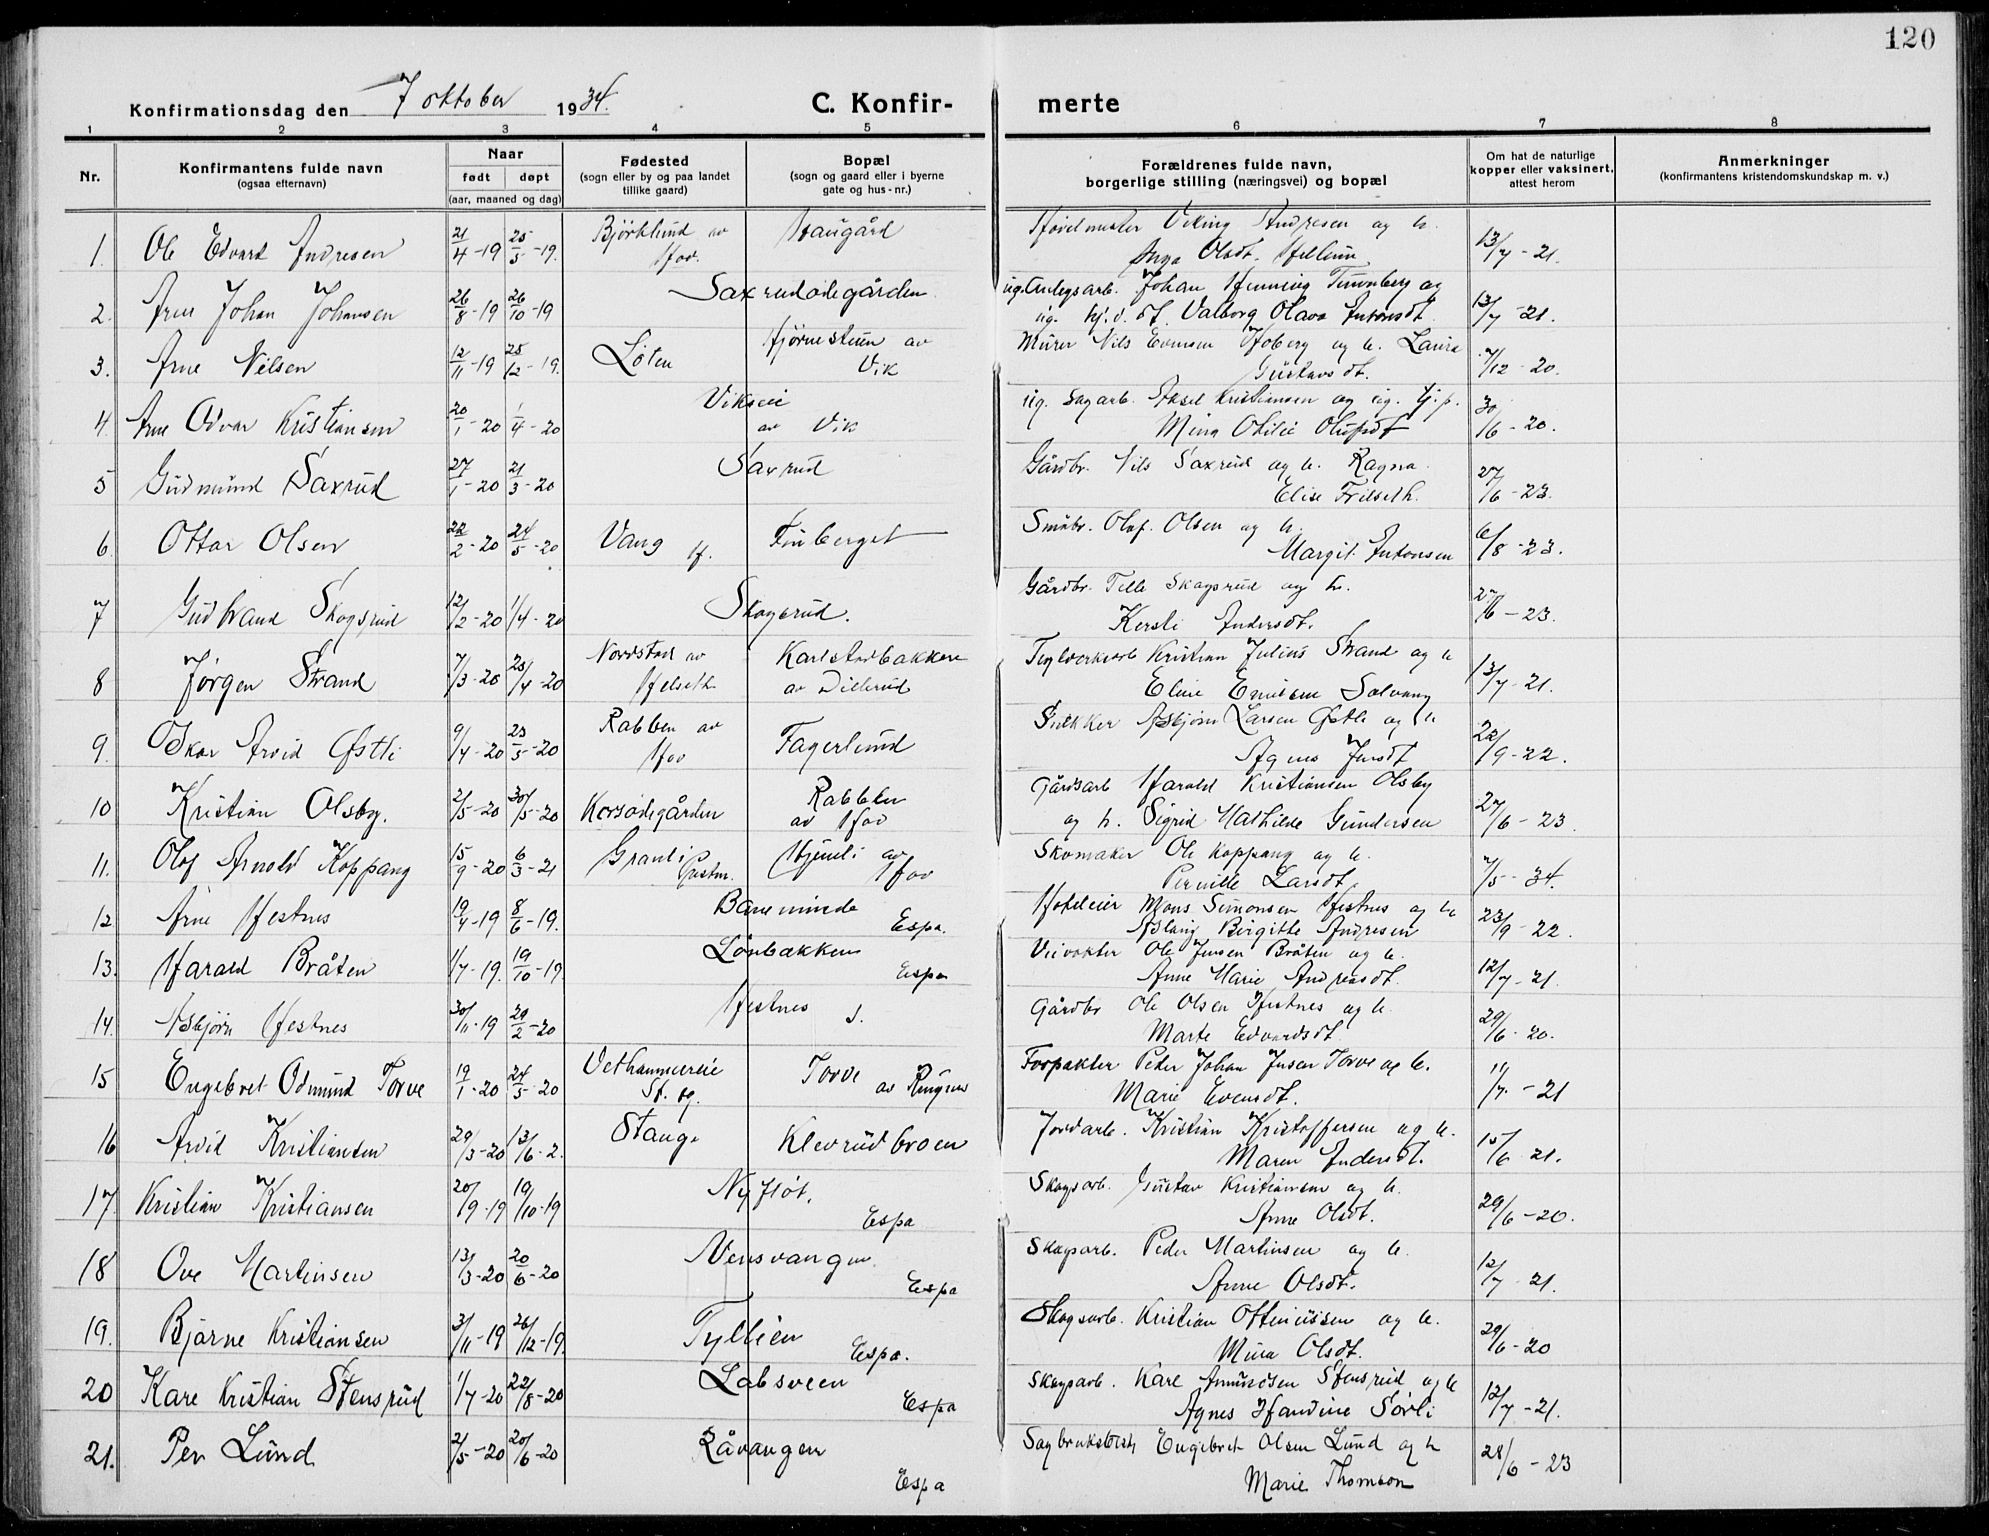 120
Konfirmationsdag den 7 oktober 1934. C. Konfir- merte
1 2 3 4 5 6 7 8
Nr. Konfirmantens fulde navn (ogsaa efternavn) Naar født døpt (aar, maaned og dag) Fødested (sogn eller by og paa landet tillike gaard) Bopæl (sogn og gaard eller i byerne gate og hus-nr.) Forældrenes fulde navn, borgerlige stilling (næringsvei) og bopæl Om hat de naturlige kopper eller vaksinert, attest herom Anmerkninger (konfirmantens kristendomskundskap m. v.)
1. Ole Edvard Andresen 21/4-19 25/5-19. Björklund av Hov. Haugård Viking Andresen og h. Inga Olsdt. 13/7-21.
2. Arne Johan Johansen 26/8-19 26/10-19 Saxrudødegården ug. Anlegsarb. Johan Henning og ug. Valborg Olava Antonsdt. 13/7-21.
3. Arne Nilsen 12/11-19 25/12-19. Löten av Vik Murer Nils Evensen og h. Laura Gustavsdt. 7/12-20.
4. Arne Odvar Kristiansen 20/1-20 1/4-20 Vikseie av Vik ug. Sagarb. Aksel Kristiansen og ug. tj.p. Mina Otilie Olufsdt 30/6-20.
5 Gudmund Saxrud 27/1-20 21/3-20 Saxrud Gårdbr. Nils Saxrud og h. Ragna Elise Frilseth. 27/6-23.
6. Ottar Olsen 22/2-20 24/5-20 Vang H. Finberget Småbr. Olaf Olsen og h. Margit Antonsen 6/8-23.
7 Gudbrand Skogsrud 12/2-20 1/4-20 Skogsrud. Gårdbr. Skogsrud og h. Kersti Andersdt. 27/6-23.
8 Jörgen Strand 7/3-20 25/4-20 Nordstad av Helseth Karlstadbakken av Dillerud Teglverksarb Kristian Julius Strand og h Eline Solvang 13/7-21.
9. Oskar Arvid Østli 9/4-20 23/5-20 Rabben av Hov Fagerlund Snekker Asbjørn Larsen Østli og h Agnes Jensdt 22/9-22.
10 Kristian Olsby. 2/5-20 30/5-20 Korsødegården Rabben av Hov Gårdsarb Harald Kristiansen Olsby og h. Sigrid Mathilde Gundersen 27/6-23.
11. Olaf Arnold Koppang 15/9-20 6/3-21 Granli Hjemli av Hov Skomaker Ole Koppang og h. Pernille Larsdt. 7/5-34.
12 Arne Hestnes 19/4-19 8/6-19. Baneminde Espa. Hoteleier Mons Simonsen Hestnes og h Aslaug Birgitte Andresen 23/9-22.
13. Harald Bråten 1/7-19. 19/10-19. Lönbakken Espa Veivokter Ole Jensen Bråten og h. Anne Marie Andreasdt. 12/7-21.
14. Asbjørn Hestnes 30/11-19 29/2-20 Hestnes S. Gårdbr Ole Olsen Hestnes og h. Marte Edvardsdt. 29/6-20.
15 Engebret Odmund Torve 19/1-20 24/5-20 Vethammereie St. Torve av Ringnes Forpakter Peder Johan Jensen Torve og h. Marie Evensdt. 11/7-21
16 Arvid Kristiansen 29/3-20 13/6-2. Stange Klevrudbroen Jordarb. Kristian Kristoffersen og h. Maren Andersdt. 15/6 21.
17. Kristian Kristiansen 20/9-19 19/10-19 Nyfløt. Espa Skogsarb. Gustav Kristiansen og h. Anne Olsdt. 29/6-20.
18 Ove Martinsen 13/3-20 20/6-20 Nensvangen Espa Skogsarb. Peder Martinsen og h. Anne Olsdt. 12/7 21.
19. Bjarne Kristiansen 3/11-19 26/12-19. Espa. Skogsarb. Kristian Ottinussen og h. Mina Olsdt. 29/6-20
20 Kare Kristian Stensrud 1/7-20 22/8-20 Labsveen Espa Skogsarb. Kare Amundsen Stensrud og h Agnes Handine Sörli 12/7-21.
21. Per Lund 21/5-20 20/6-20 Råvangen Espa Engebret Olsen Lund og h Marie Thomson 28/6-23